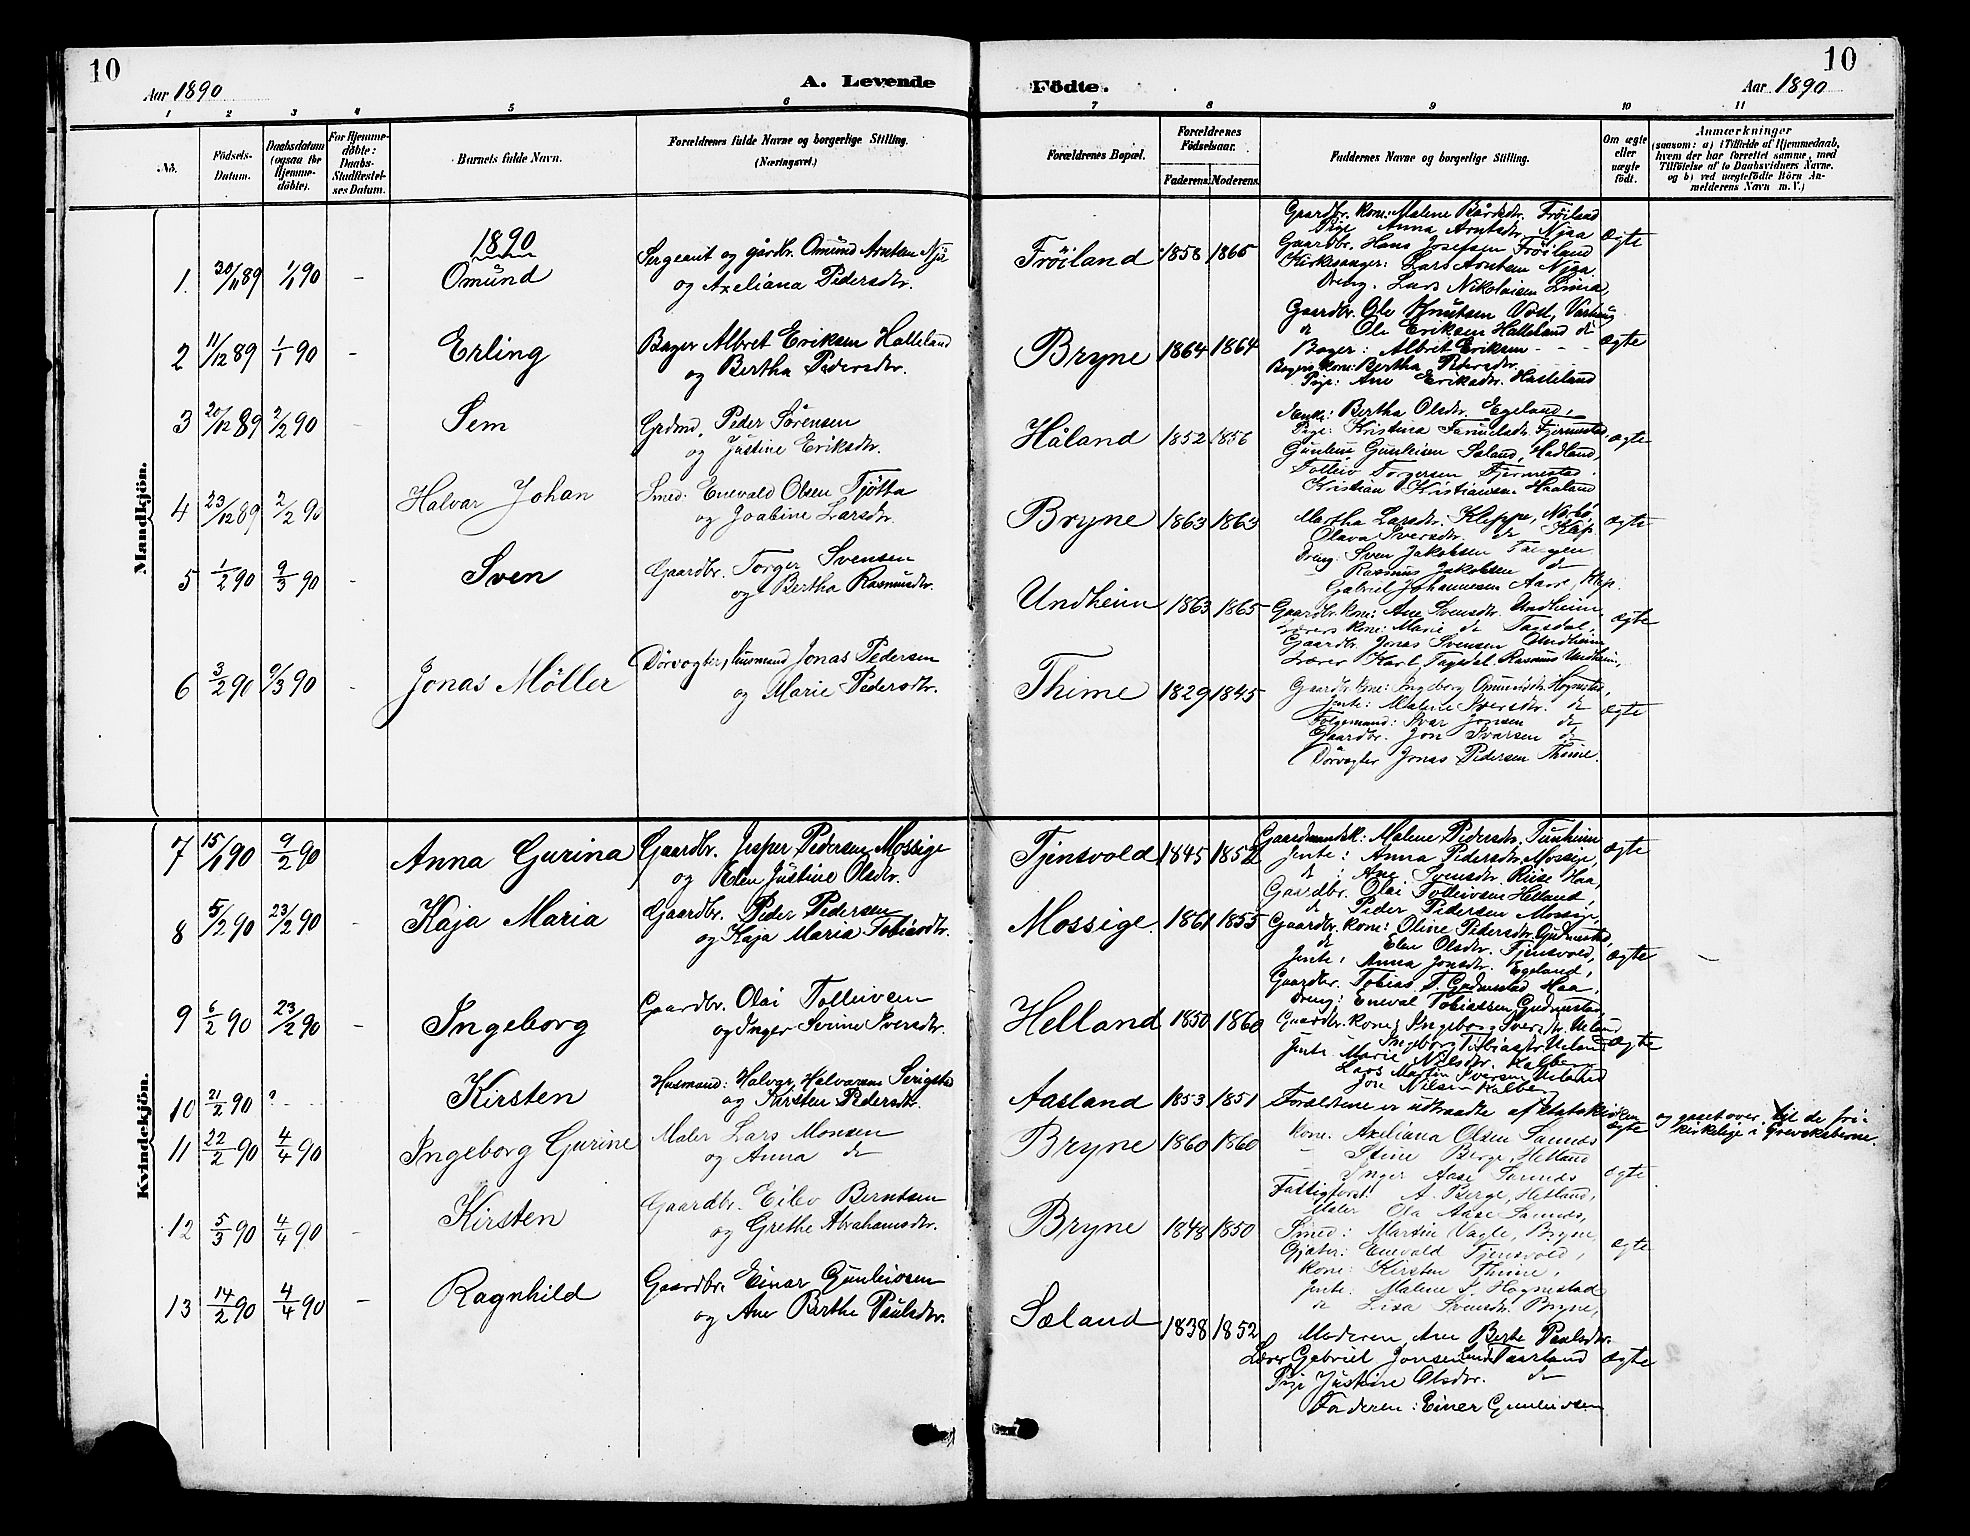 10
Aar 1890
A. Levende
1 2 3 4 5 6
No.
Födsels-Datum.
Daabsdatum (ogsaa for Hjemme-döbte).
For Hjemme-döbte: Daabs-Stadfæstel-ses Datum.
Barnets fulde Navn.
Forældrenes fulde Navne og borgerlige Stilling. (Næringsvei.)
Mandkjön.
1890
1. 30/11 89 1/1 90 - Omund
Sergeant og gårdbr. Omund Arntsen Njå
og Axeliana Pedersdtr.
2 11/12 89 1/1 90 - Erling
Bager Albret Eriksen Halleland
og Bertha Pedersdtr.
3 20/12 89 2/2 90 Sem
Grdmd. Peder Sörensen
og Justine Eriksdtr.
4 23/12 89 2/2 90 Halvar Johan
Smed: Enevald Olsen Tjötta
og Joabine Larsdtr.
5 1/2 90 9/3 90 - Sven
Gaardbr. Torger Svensen
og Bertha Rasmusdtr.
6 3/2 90 9/3 90 - Jonas Möller
Dörvogter, husmand Jonas Pedersen
og Marie Pedersdtr.
Kvindekjön.
7 15/1 90 9/2 90 Anna Gurina
Gaardbr. Jesper Pedersen Mossige
og Elen Justine Olsdtr.
8 5/2 90 23/2 90 Kaja Maria
Gaardbr. Peder Pedersen
og Kaja Maria Tobiasdtr.
9 6/2 90 23/2 90 - Ingeborg
Gaardbr. Olai Tolleivsen
og Inger Serine Iversdtr.
10 21/2 90 ? - Kirsten
Husmand: Halvar Halvorsen Serigstad
og Kirsten Pedersdtr.
11 22/2 90 4/4 90 Ingeborg Gurine
Maler Lars Monsen
og Anna do
12 5/3 90 4/4 90 - Kirsten
Gaardbr. Eilev Berntsen
og Grethe Abrahamsdtr.
13 14/2 90 4/4 90 - Ragnhild
Gaardbr. Einar Gunleivsen
og Ane Berthe Paulsdtr.
10
Aar 1890
Födte.
7 8 9 10 11
Forældrenes Bopæl.
Forældrenes Födselsaar.
Faderens. Moderens.
Faddernes Navne og borgerlige Stilling.
Om ægte eller uægte födt.
Anmærkninger
(saasom: a) i Tilfælde af Hjemmedaab, hvem der har forrettet samme, med Tilföielse af to Daabsvidners Navne. og b) ved uægtefödte Börn An-melderens Navn m. V.)
Fröiland 1858 1865
Gaardbr. kone: Malene Bårdsdr. Fröiland
Pige Anna Arntsdr. Njaa
Gaardbr. Hans Josefsen Fröiland
Kirkesanger: Lars Arntsen Njaa
Dreng. Lars Nikolaisen Lima,
ægte
Bryne 1864 1864
Gaardbr. Ole Knutsen Vod, Varhaug
do Ole Eriksen Halleland do
Bager: Albret Eriksen - -
Bagers kone: Bertha Pedersdtr.
Pige: Ane Eriksdtr. Halleland
ægte
Håland 1852 1856
Enke: Bertha Olsdtr. Egeland,
Pige: Kristina Samuelsdtr. Fjermestad
Gunleiv Gunleivsen Sæland, Hadland,
Tolleiv Torgersen Fjermestad.
Kristian Kristiansen Haaland
ægte
Bryne 1863 1863
Martha Larsdtr. Kleppe, Nærbö,
Olava Iversdtr. do Klep
Dreng. Sven Jakobsen Tangen
Rasmus Jakobsen do
Gabriel Johannesen Aarre, Klep.
ægte
Undheim 1863 1865
Gaardbr. kone: Ane Svensdtr. Undheim,
Lærers kone: Marie do Tagsdal,
Gaardbr. Jonas Svensen Undheim,
Lærer Karl Tagsdal. Rasmus Undheim,
ægte
Thime 1829 1845
Gaardbr. kone: Ingeborg Omundsdtr. Hognestad,
Jente: Malene Iversdtr. do
Folgemand: Ivar Jonsen do
Gaardbr. Jon Ivarsen do
Dörvogter Jonas Pedersen Thime.
ægte
Tjensvold 1845 1852
Gaardmandsk: Malene Pedersdtr. Tunheim
Jente: Anna Pedersdtr. Mossige,
do: Ane Svensdtr. Riise Haa,
Gaardbr. Olai Tolleivsen Helland,
do Peder Pedersen Mossige,
ægte
Mossige. 1861 1855
Gaardbr. kone: Oline Pedersdtr. Gudmestad,
do Elen Olsdtr. Tjensvold,
Jente: Anna Jonsdtr. Egeland,
Gaardbr. Tobias T. Gudmestad Haa,
Dreng: Eneval Tobiassen Gudmestad,
ægte
Helland 1850 1860
Gaardbr. kone: Ingeborg Iversdtr. Ueland
Ingeborg Tobiasdtr. Ueland
Jente. Marie Nilsdtr. Kalbe
Lars Martin Iversen Ueland
Jon Nilsen Kalbe
ægte
Aasland 1853 1851
Forældrene er udtraadte af Statskirken
ægte
og gaaet over til de fri-
kirkelige i Grevskaberne.
Bryne 1860 1860
kone: Axeliana Olsen Sannes
Stine Berge, Hetland
Inger Aase Sannes
Fattigforst. A. Berge, Hetland,
Maler Ola Aase Sannes,
ægte
Bryne 1848 1850
Smed: Martin Vagle, Bryne
Gjæter: Enevald Tjensvold,
kone: Kirsten Thime,
Jente: Malene S. Hognestad
do Lisa Svensdtr. Bryne,
ægte
Sæland 1838 1852
Moderen Ane Berte Paulsdtr.
Lærer Gabriel Jonsen Lende Taarland
Pige Justine Olsdtr. do
Faderen: Einer Gunleivsen
ægte